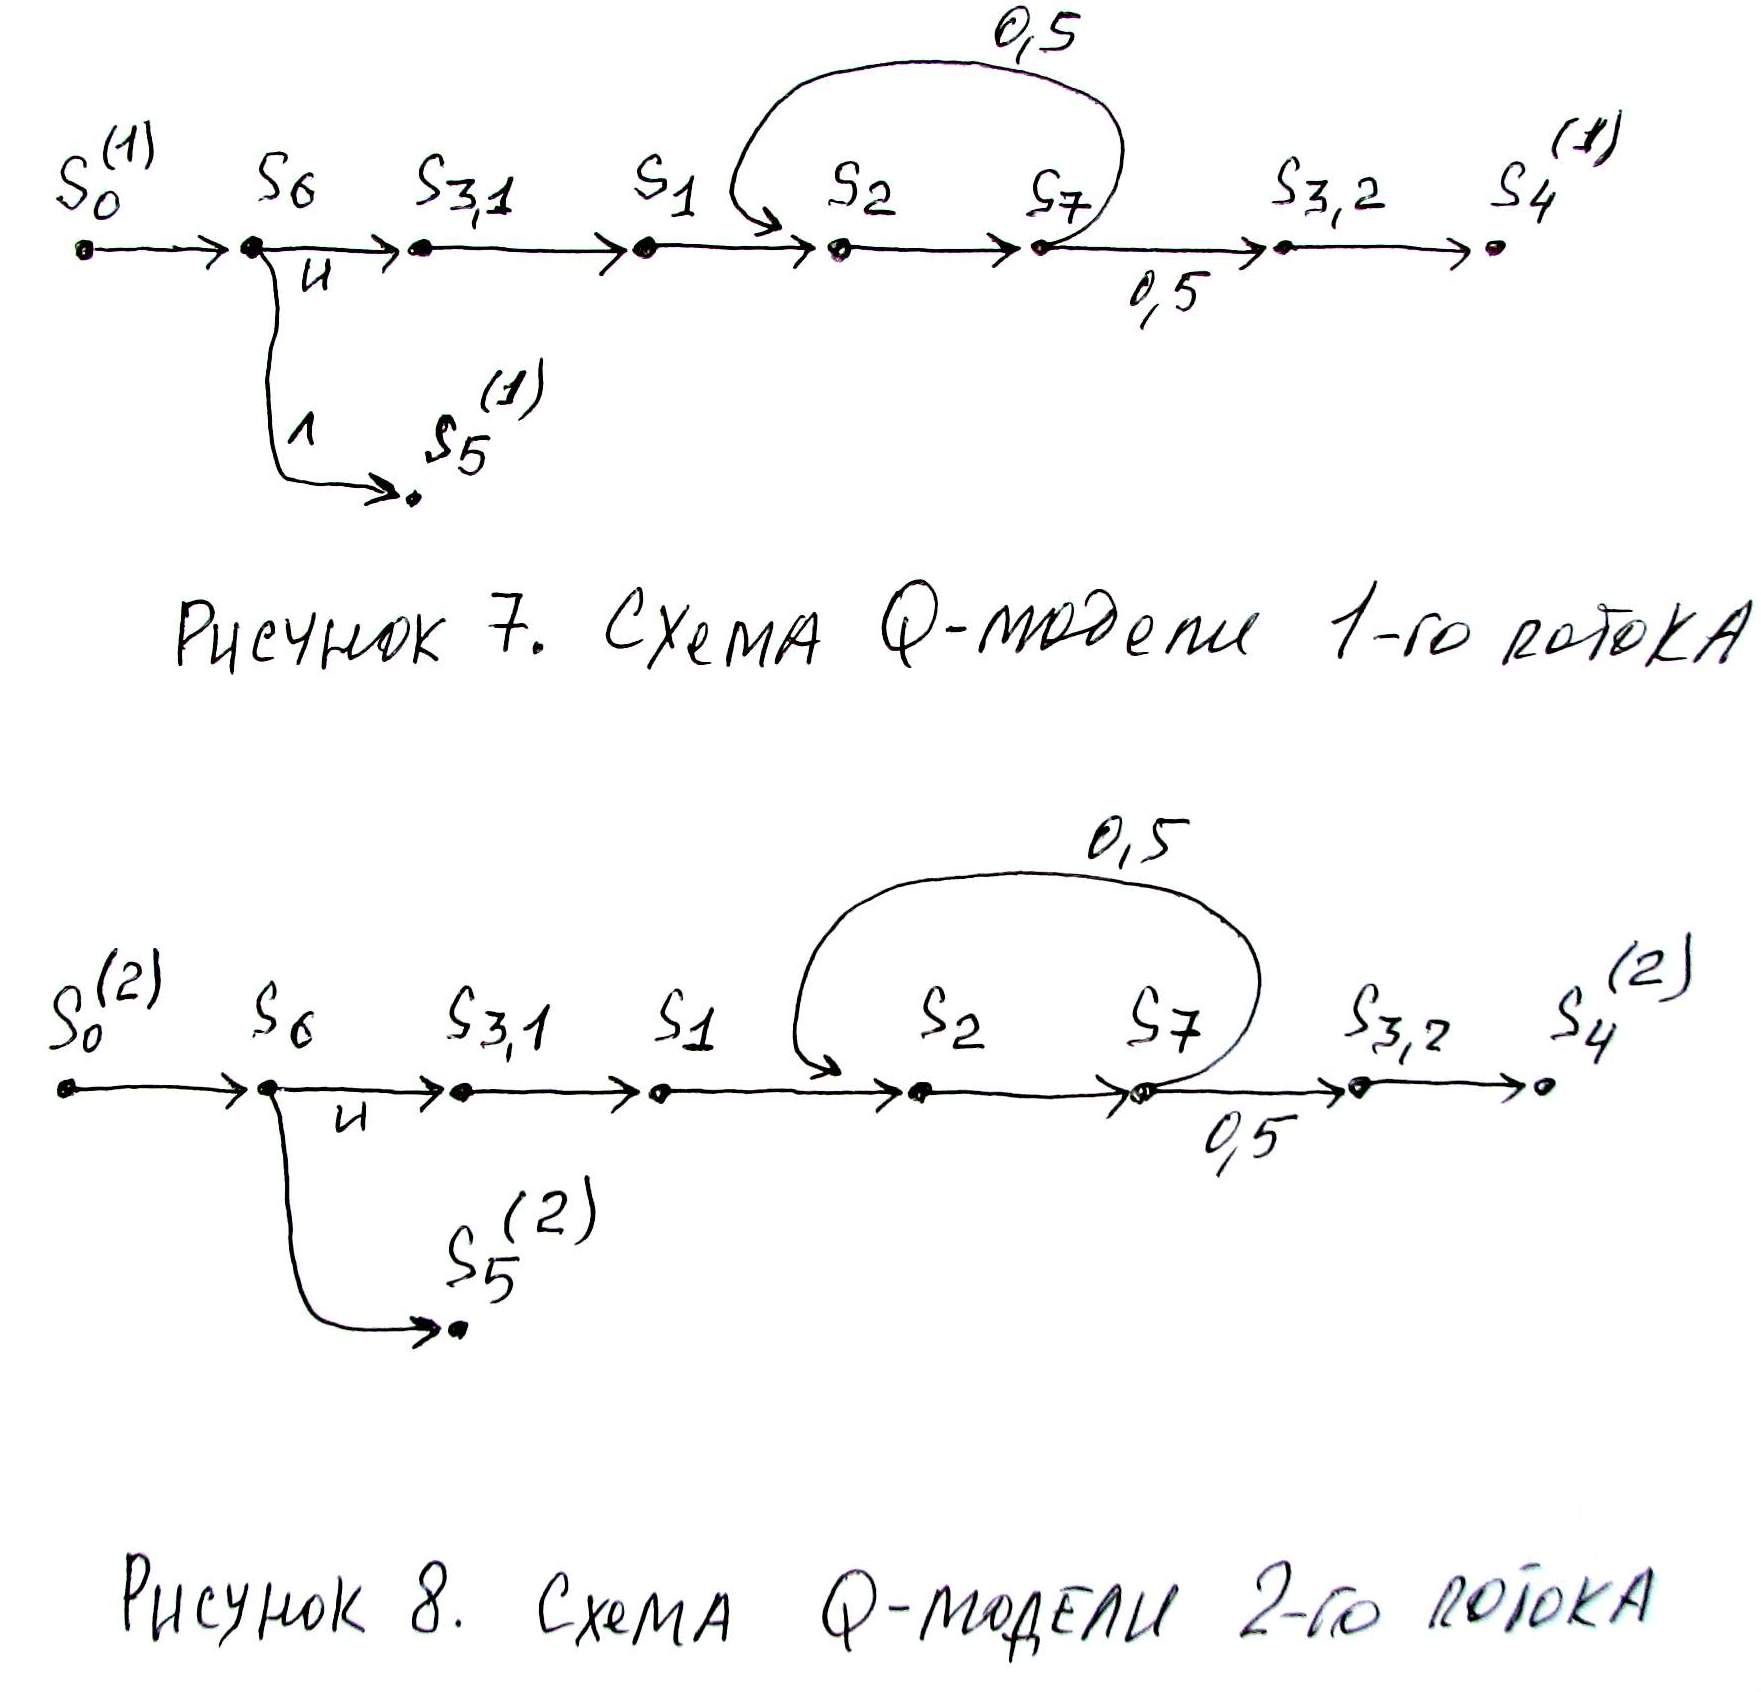 0,5
S0(1) S6 S3,1 S1 S2 S7 S3,2 S4(1)
И 0,5
Л S5(1)
Рисунок 7. Схема Q-модели 1-го потока
0,5
S0(2) S6 S3,1 S1 S2 S7 S3,2 S4(2)
И 0,5
S5(2)
Рисунок 8. Схема Q-модели 2-го потока